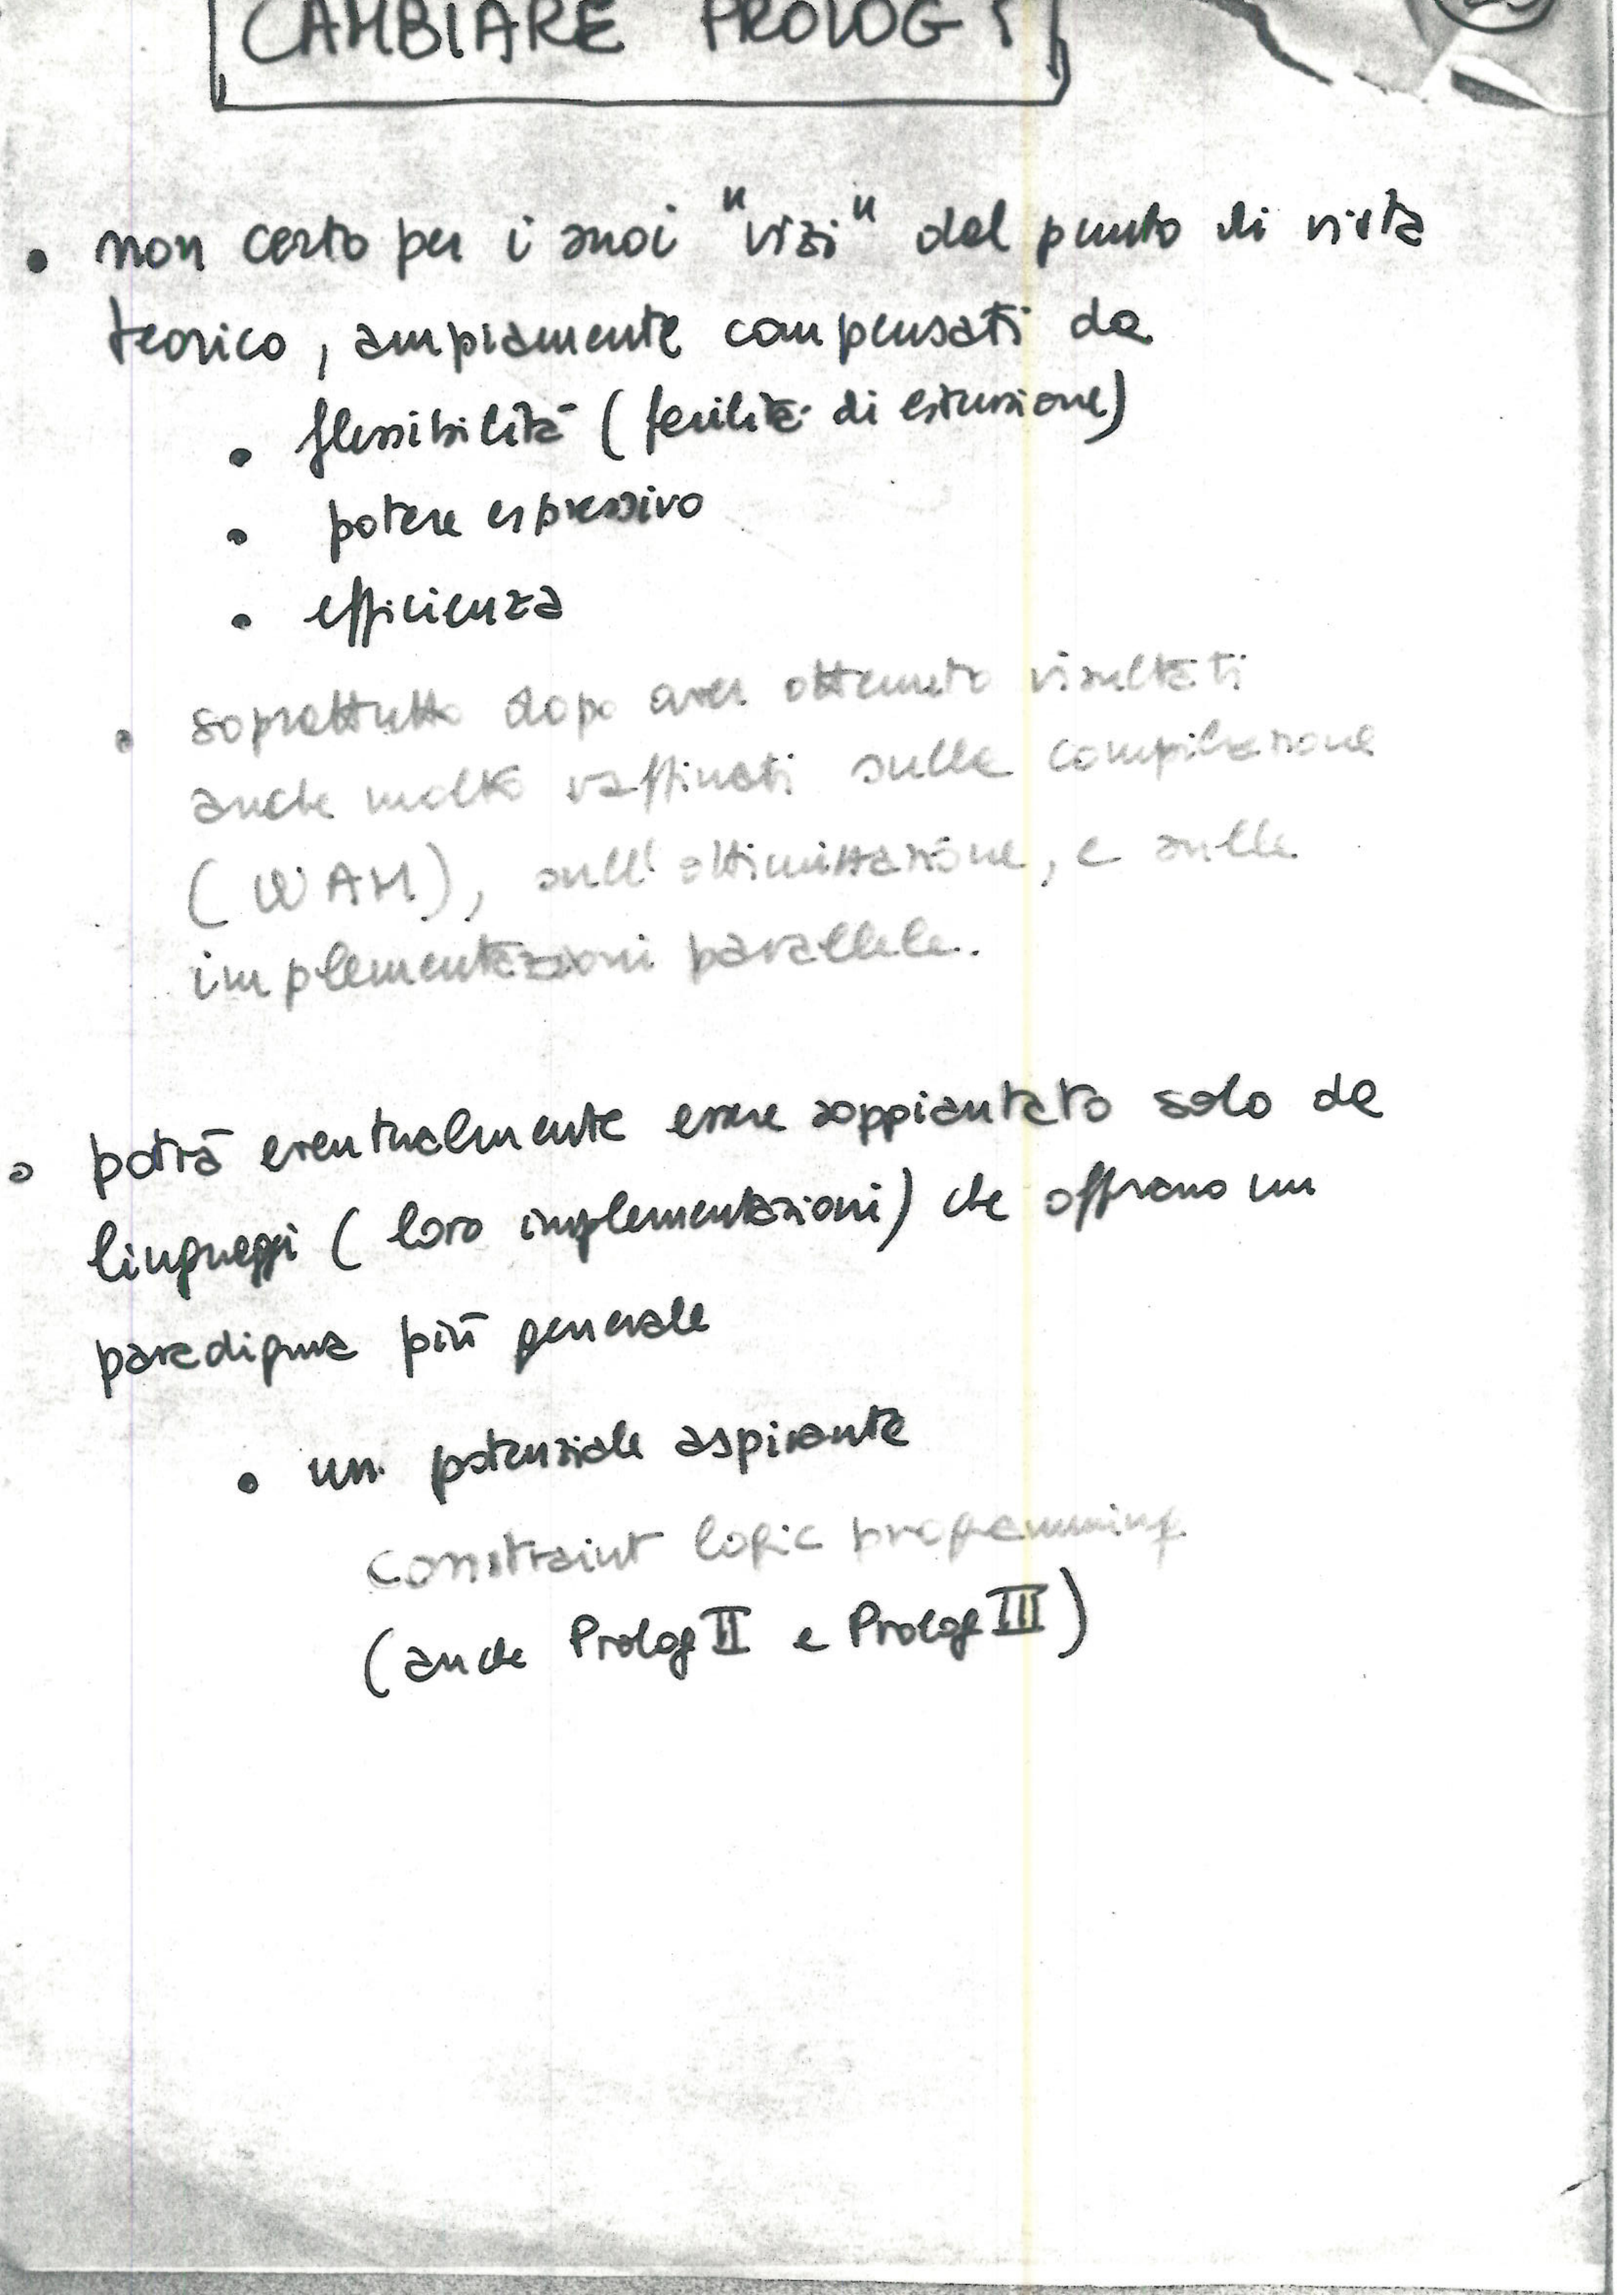 CAMBIARE PROLOG?
• non certo per i suoi "vizi" dal punto di vista
teorico, ampiamente compensati da
• flessibilità (facilità di estensione)
• potere espressivo
• efficienza
• soprattutto dopo aver ottenuto risultati
anche molto raffinati sulla compilazione
(WAM), sull'ottimizzazione, e sulle
implementazioni parallele.
• potrà eventualmente essere soppiantato solo da
linguaggi (loro implementazioni) che offrano un
paradigma più generale
• un potenziale aspirante
constraint logic programming
(anche Prolog II e Prolog III)